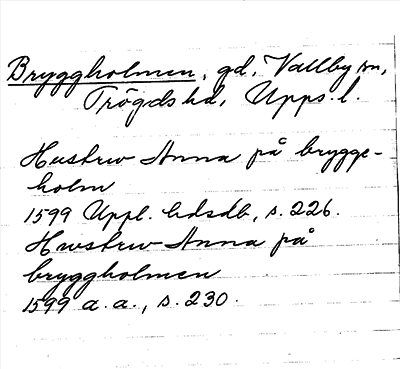 Bryggholmen, gd, Vallby sn,
Trögds hd, Upps. l.
Hustrw Anna på brygge-
holm
1599 Uppl. ldsdb, s. 226.
Hwstrw Anna på
bryggholmen
1599 a. a., s. 230.